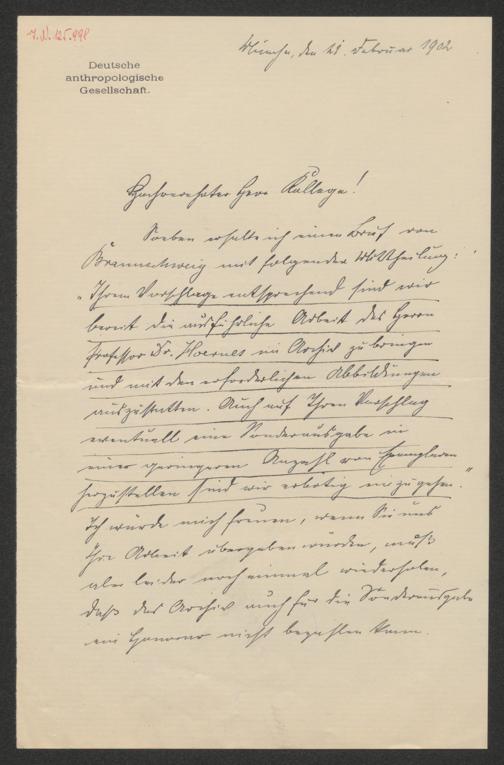 J. N. 125.998
Deutsche
anthropologische
Gesellschaft.
München, den 21. Februar 1902
Hochverehrter Herr Kollege!
Soeben erhalte ich einen Brief von
Braunschweig mit folgender Mittheilung:
„Ihrem Vorschlage entsprechend sind wir
bereit die ausführliche Arbeit des Herrn
Professor Dr. Hoernes im Archiv zu bringen
und mit den erforderlichen Abbildungen
auszustatten. Auch auf Ihren Vorschlag
eventuell eine Sonderausgabe in
einer geringeren Anzahl von Exemplaren
herzustellen sind wir erbötig einzugehen."
Ich würde mich freuen, wenn Sie uns
Ihre Arbeit übergeben würden, muß
aber leider noch einmal wiederholen,
daß das Archiv auch für die Sonderausgabe
ein Honorar nicht bezahlen kann.